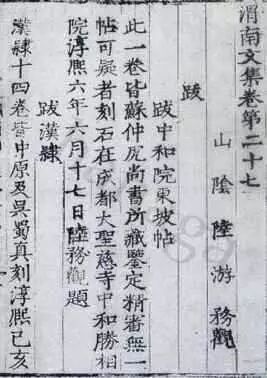 渭南文集卷第二十七
山陰陸游務觀
跋
跋中和院東坡帖
此一卷皆蘇仲虎尚書所藏鑒定精者無一
帖可疑者刻石在成都大聖慈寺中和勝相
院淳熙六年六月十七日陸務觀題
跋漢隸
漢隸十四卷皆中原及吳蜀真刻淳熙己亥